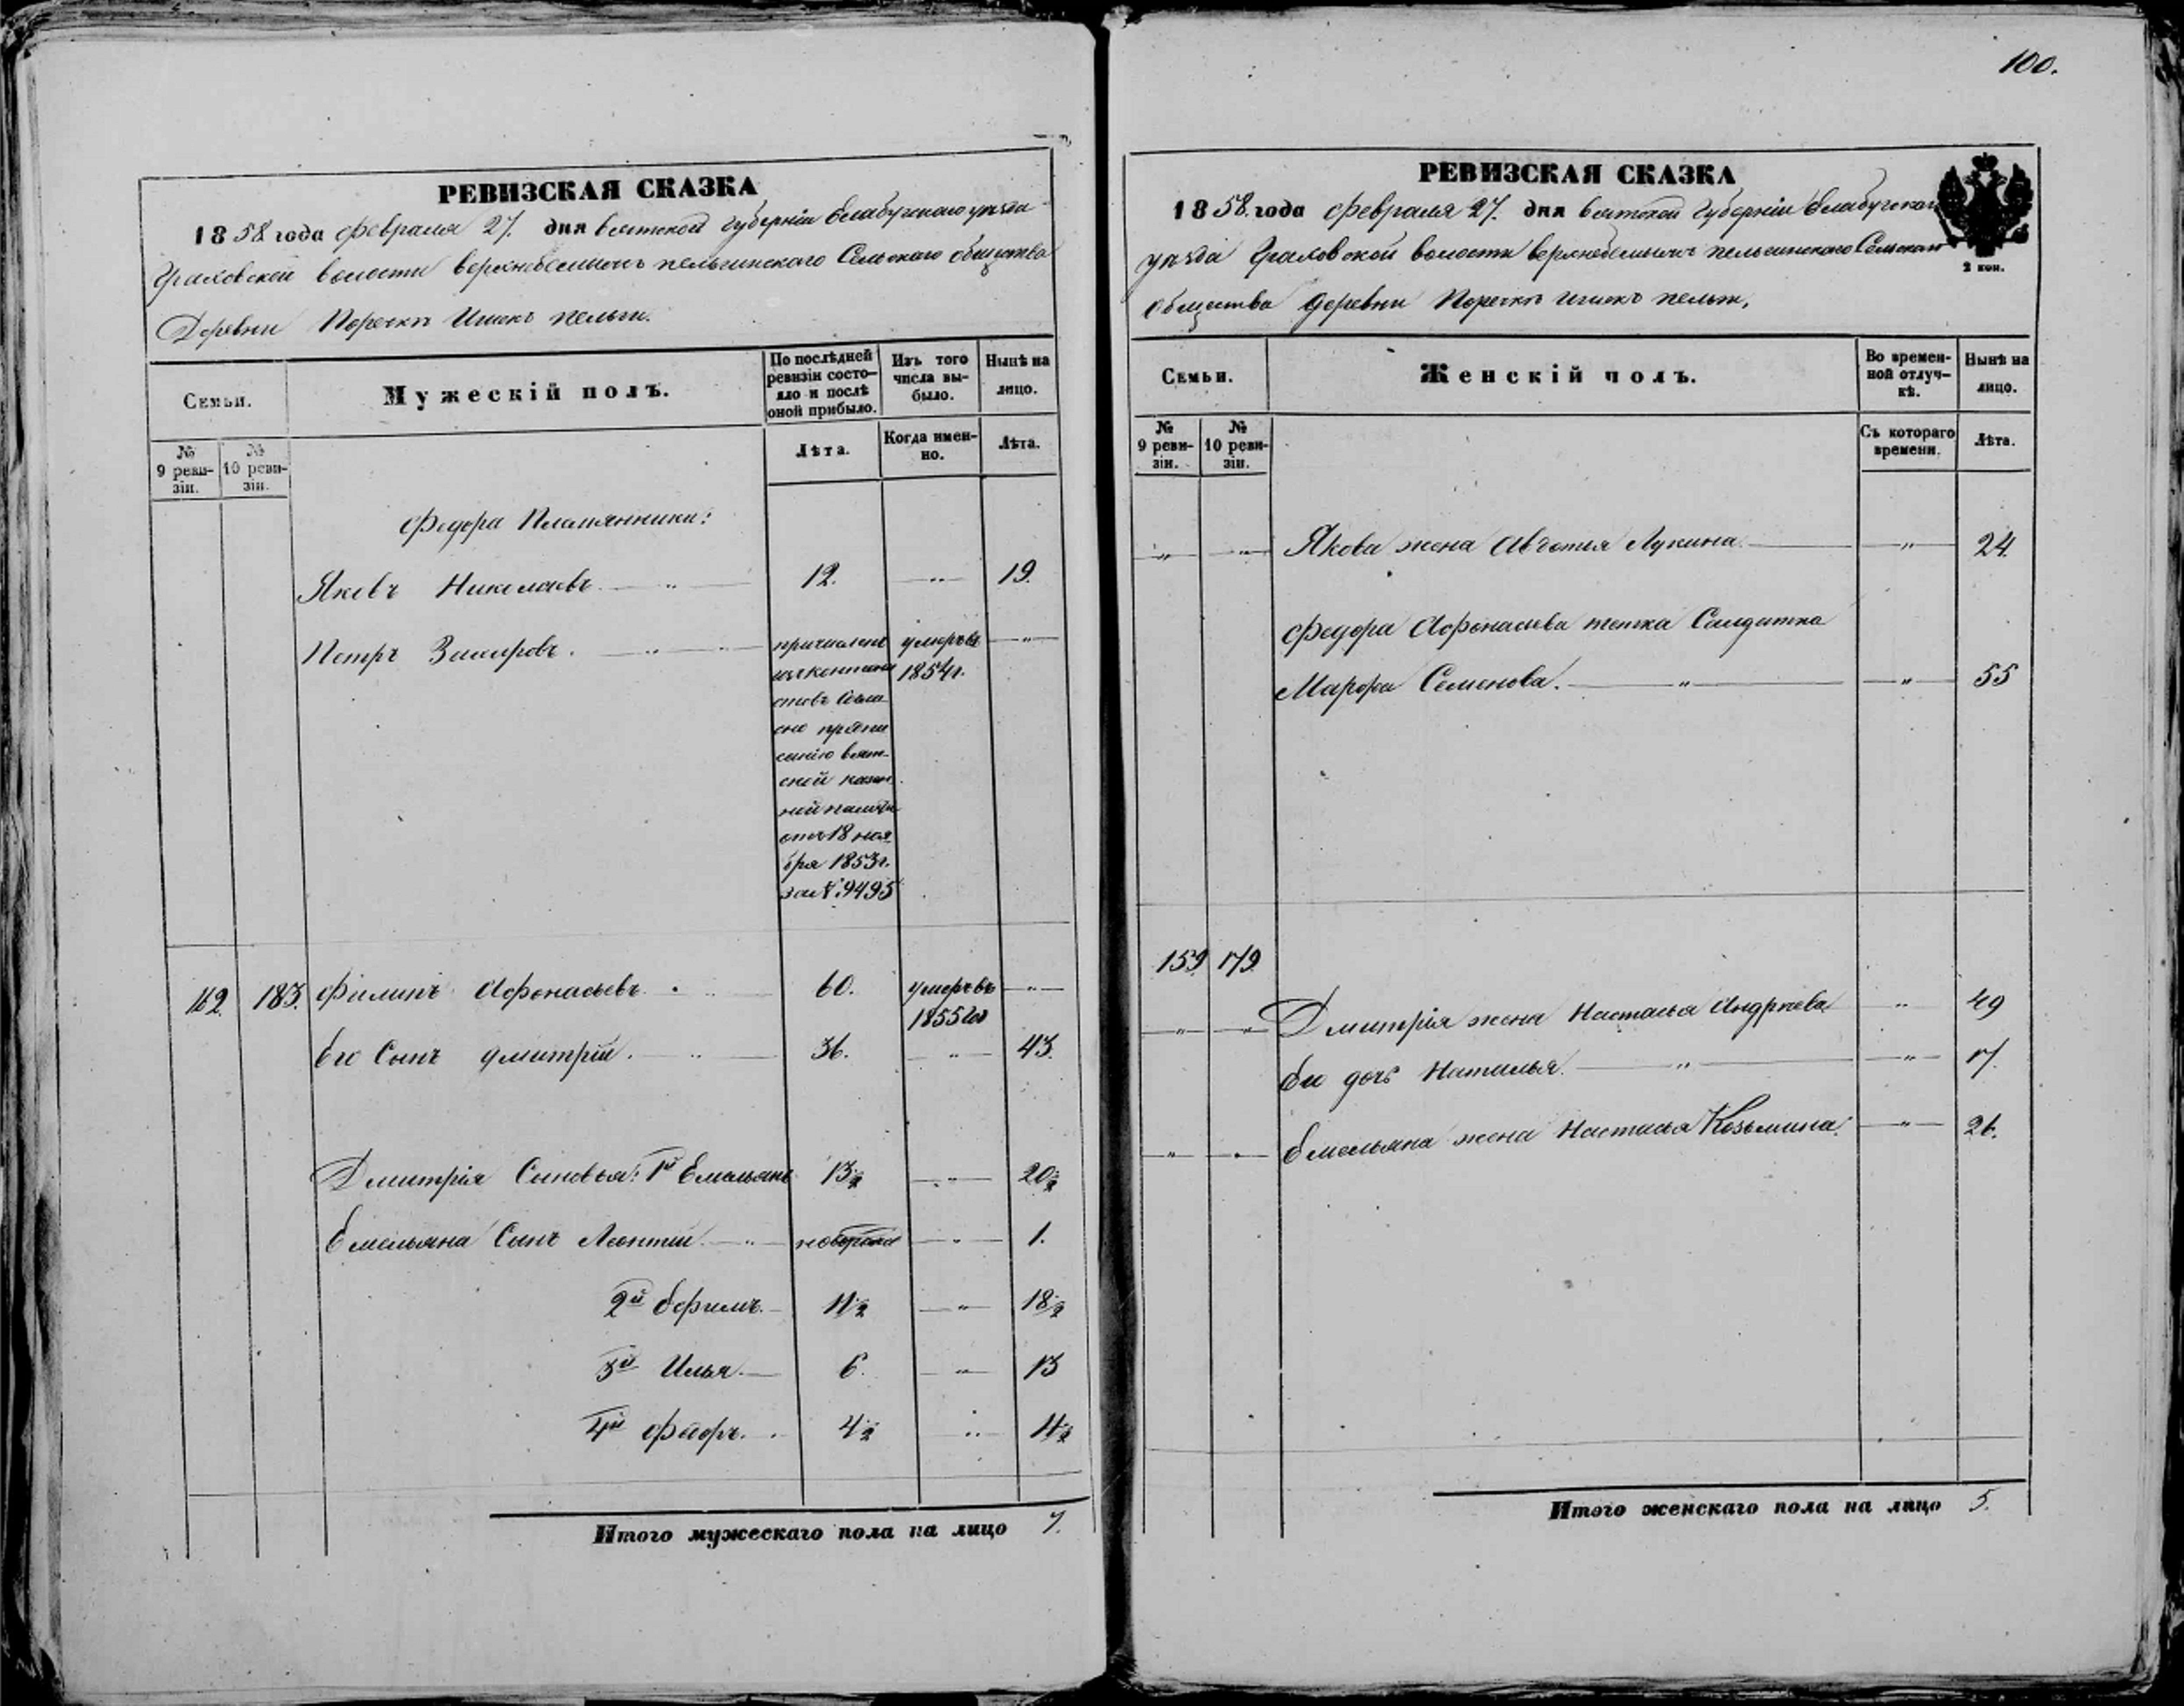 100.
РЕВИЗСКАЯ СКАЗКА
1858 года Февраля 27. дня Вятской Губерніи Елабужскаго уѣзда
Граховской волости Сельскаго общества
Деревни
Семьи.
Мужескій полъ.
По послѣдней ревизіи состояло и послѣ оной прибыло.
Изъ того числа выбыло.
Нынѣ на лицо.
№ 9 ревизіи.
№ 10 ревизіи.
Лѣта.
Когда именно.
Лѣта.
Федора Племянники:
Яковъ Николаевъ 12. 19.
Петръ причисленъ умеръ въ
1854г.
стовъ согла-
сно предпи
санію Вят-
ской казен
ной палаты
отъ 18 ноя
бря 1853г.
за № 9495
162. 183. Филипъ Афонасьевъ 60. умеръ въ
1855 год
Его Сынъ Дмитрій. 36. 43.
Дмитрія Сыновья: 1й Емельянъ 13½ 20½
Емельяна Сынъ Леонтій новорожд 1.
2й Ефимъ. 11½ 18½
3й Илья. 6. 13
4й Федоръ. 4½ 11½
Итого мужескаго пола на лицо 7.
РЕВИЗСКАЯ СКАЗКА
1858 года Февраля 27. дня Вятской Губерніи Елабужскаго
2 коп.
уѣзда Граховской волости Сельскаго
общества деревни
Семьи.
Женскій полъ.
Во временной отлучкѣ.
Нынѣ на лицо.
№ 9 ревизіи.
№ 10 ревизіи.
Съ котораго времени.
Лѣта.
Якова жена Авдотья Лукина 24.
Федора Афонасьева тетка Салдатка
Марфа Семенова. 55
159 179
Дмитрія жена Настасья Андреева 49
Его дочь Наталья. 17.
Емельяна жена Настасья Козьмина. 26.
Итого женскаго пола на лицо 5.